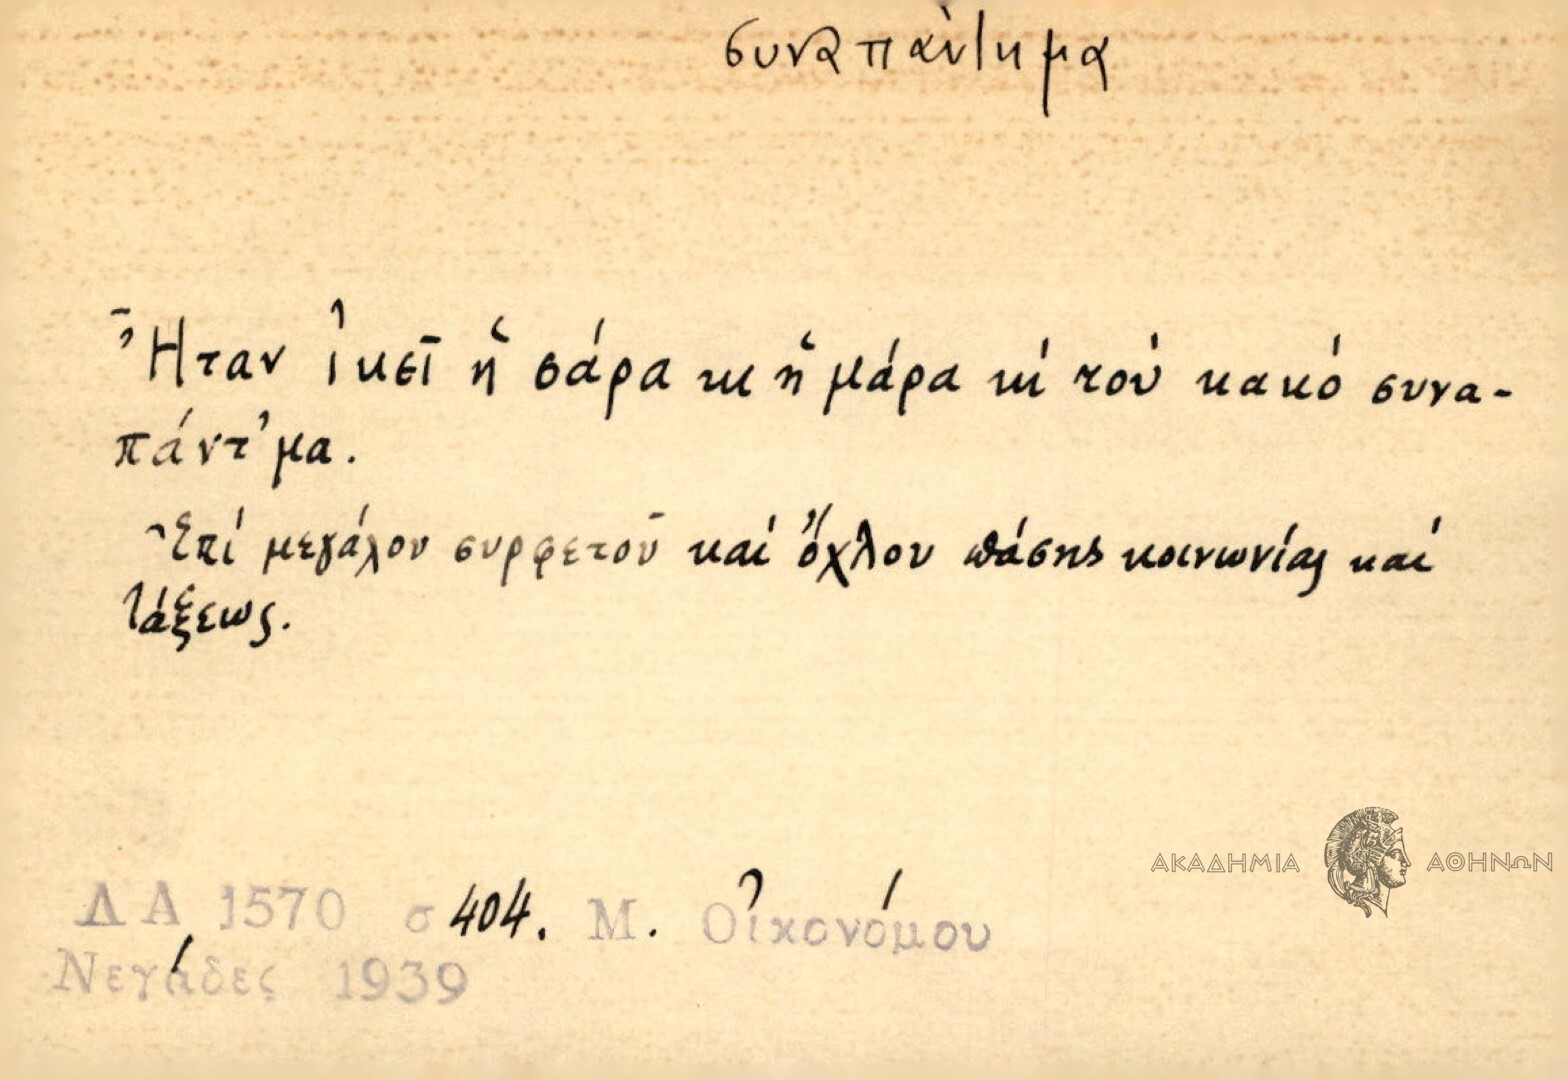 συναπάντημα
Ἦταν ἰκεῖ ἡ σάρα κι ἡ μάρα κί τού κακό συνα-
πάντ'μα.
Ἐπί μεγάλου συρφετοῦ καί ὄχλου πάσης κοινωνίας καί
τάξεως.
ΑΚΑΔΗΜΙΑ ΑΘΗΝΩΝ
ΔΑ 1570 σ 404. Μ. Οἰκονόμου
Νεγάδες 1939